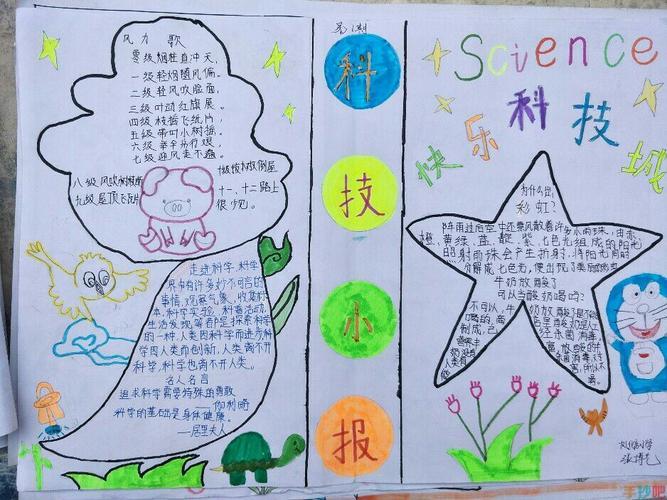 风力歌
零级烟柱直冲天,
一级轻烟随风偏。
二级轻风吹脸面,
三级叶动红旗展。
四级枝摇飞纸片,
五级带叶小树摇,
六级举伞步行艰,
七级迎风走不盏。
八级风吹树枝断
九级屋顶飞瓦片
十级拔树又倒屋
十一、十二路上
很少见。
走进科学,科学
界中有许多妙不可言的
事情,观察气象、收集标
本,科学实验,科普活动,
生活发现等都是探索科学
的一种,人类因科学而进步科
学因人类而创新,人类离不开
科学,科学也离不开人类。
名人名言
追求科学需要特殊的勇敢
——伽利略
科学的基础是身体健康。
——居里夫人
科
技
小
报
Science
快乐科技城
为什么出
彩虹?
阵雨过后空中还飘散着许多小雨珠,由赤、
橙、黄、绿、蓝、靛、紫、七色光组成的阳光
照射雨珠会产生折射,将阳光
分解成七色光,便出现了美丽的彩虹
牛奶放酸了
可以当酸奶喝吗?
不可以,牛奶放酸了是不能